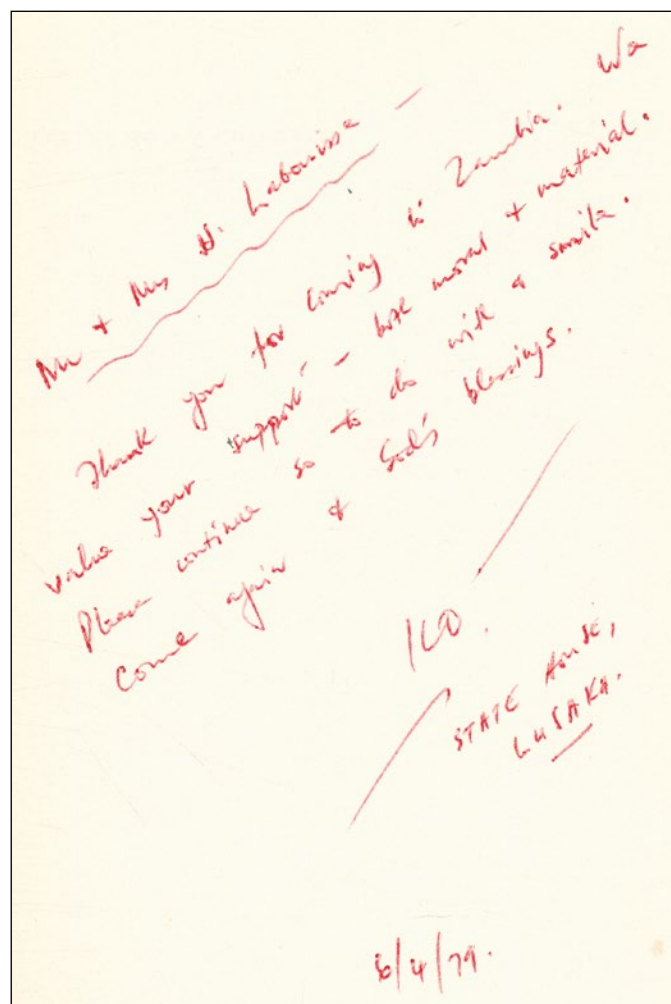 Mr + Mrs H. Labouisse —
Thank you for coming to Zambia. We
value your support — both moral & material.
Please continue so to do with a smile.
Come again & God's blessings.
STATE HOUSE,
LUSAKA.
6/4/79.